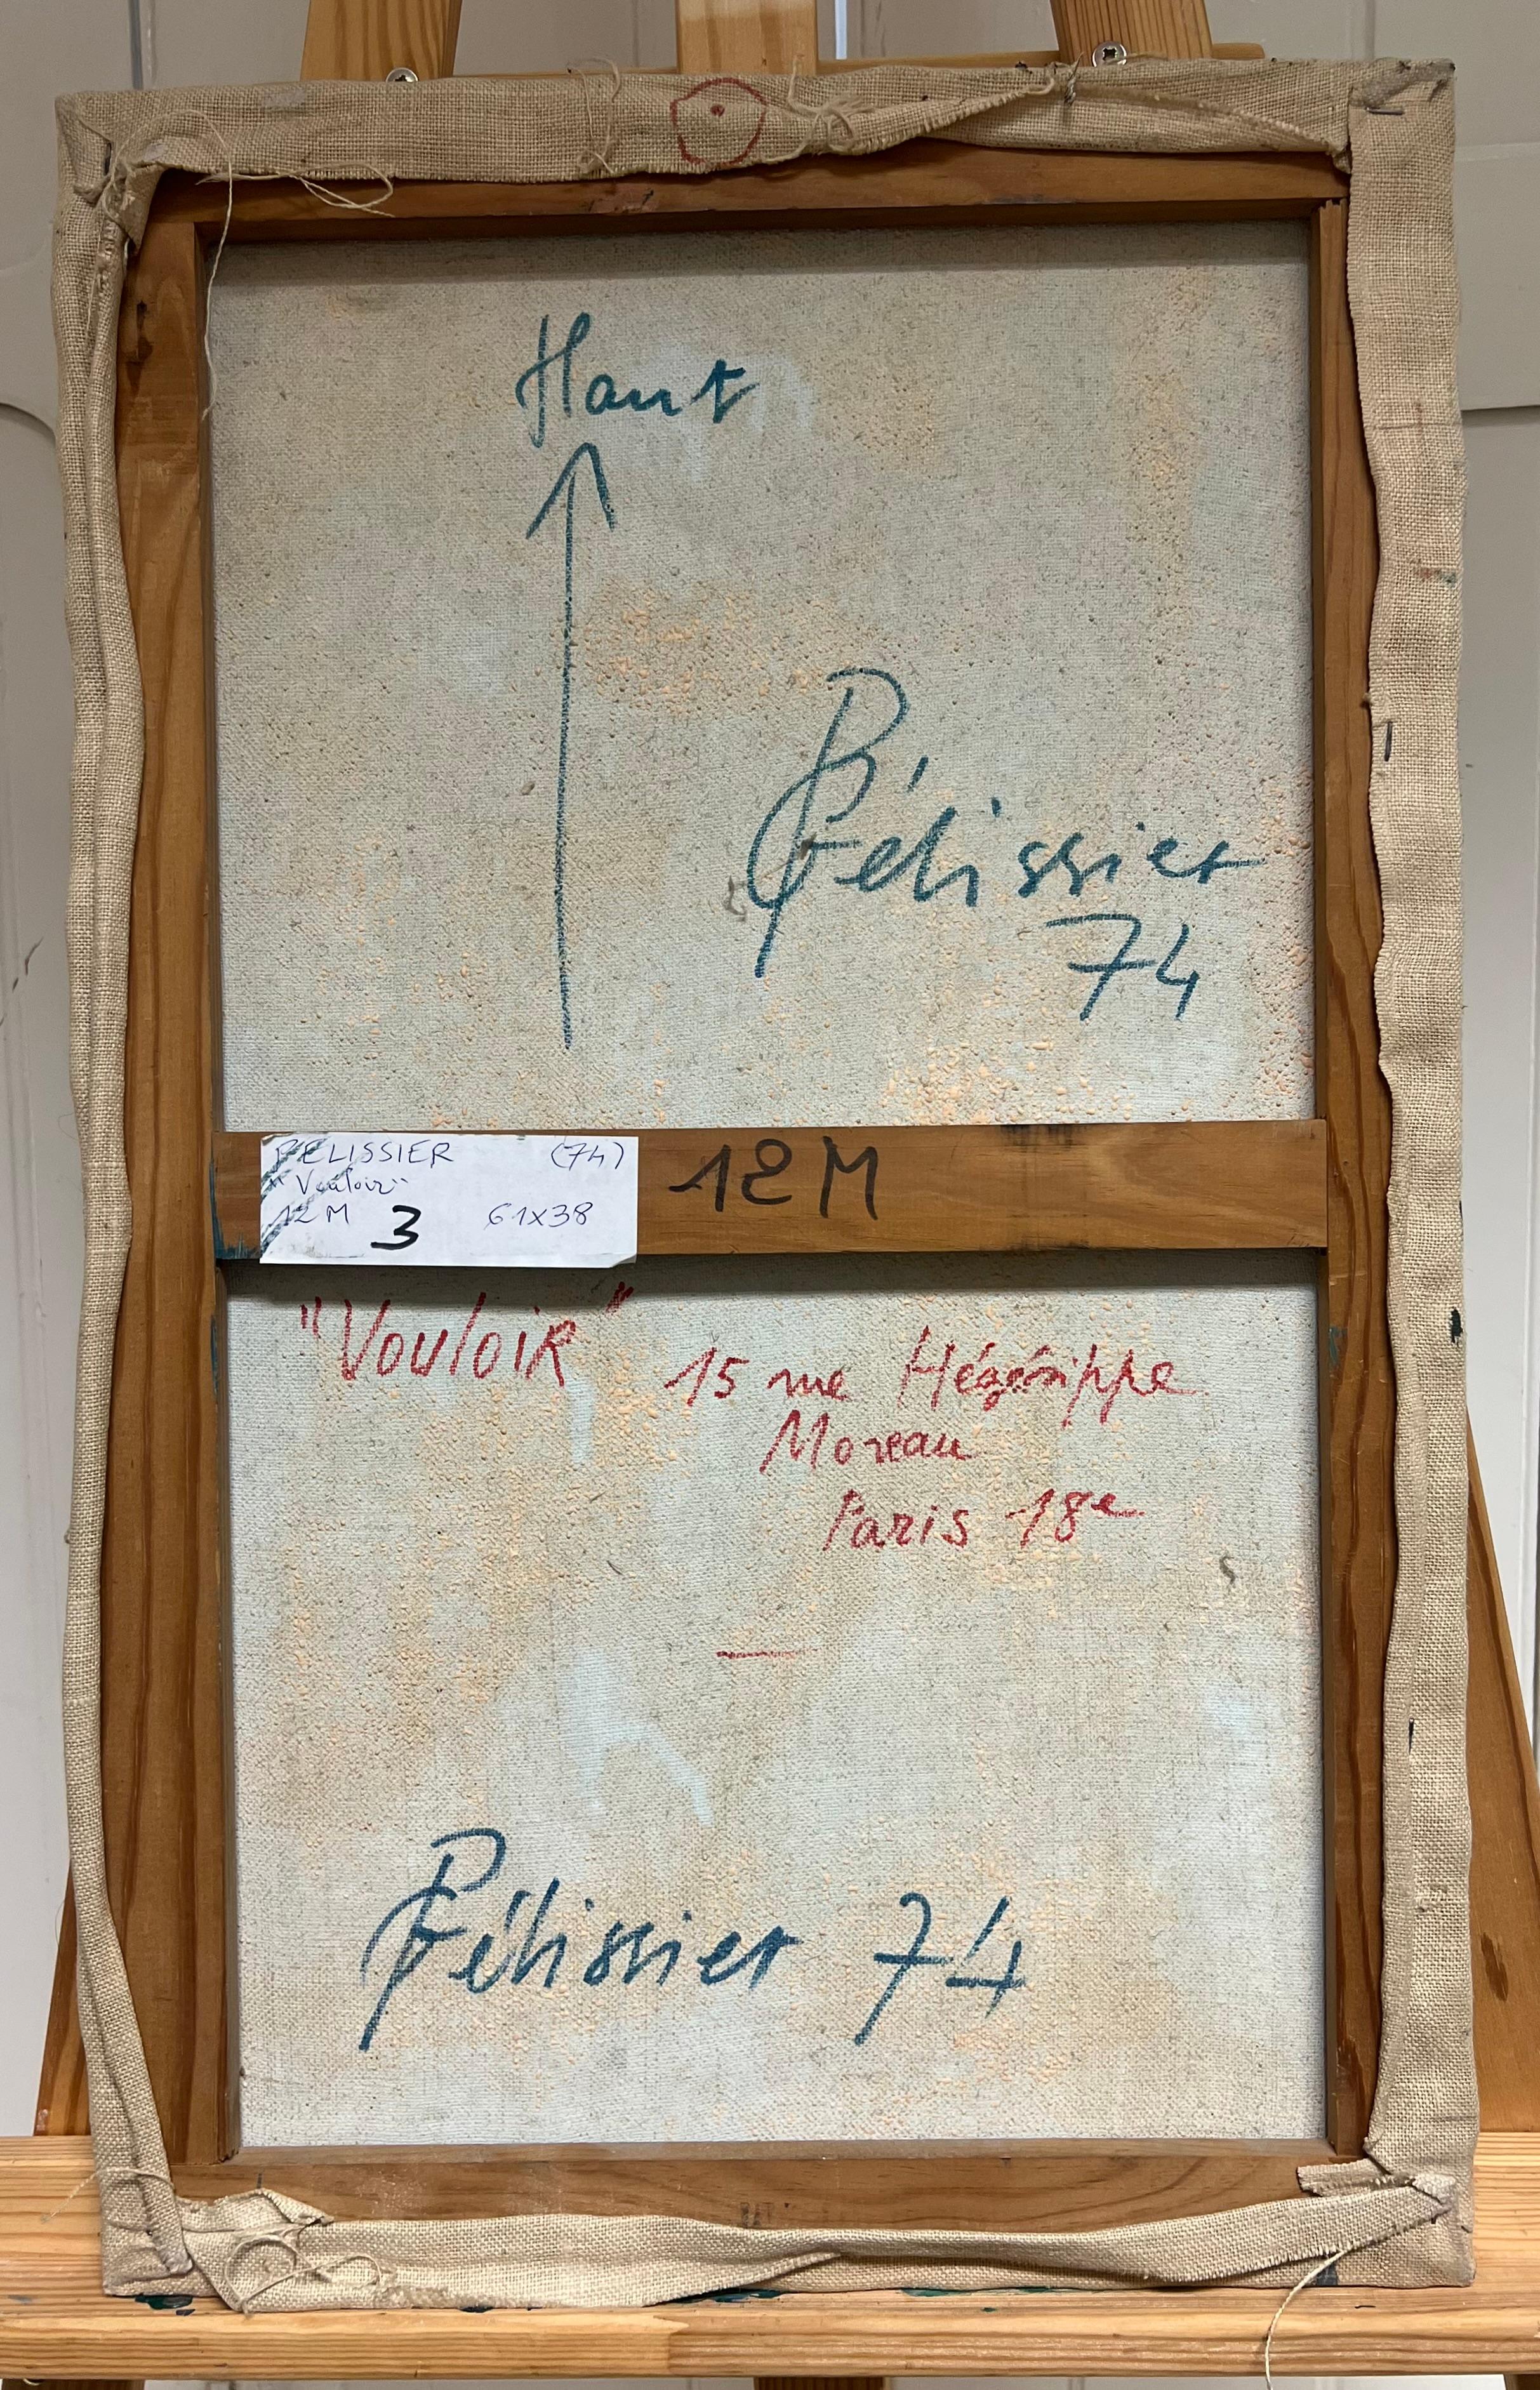 Haut
Pélissier
74
PELISSIER (74)
"Vouloir"
12M 3 61x38
12M
"VOULOIR"
15 rue Hégésippe
Moreau
Paris 18e
Pélissier 74